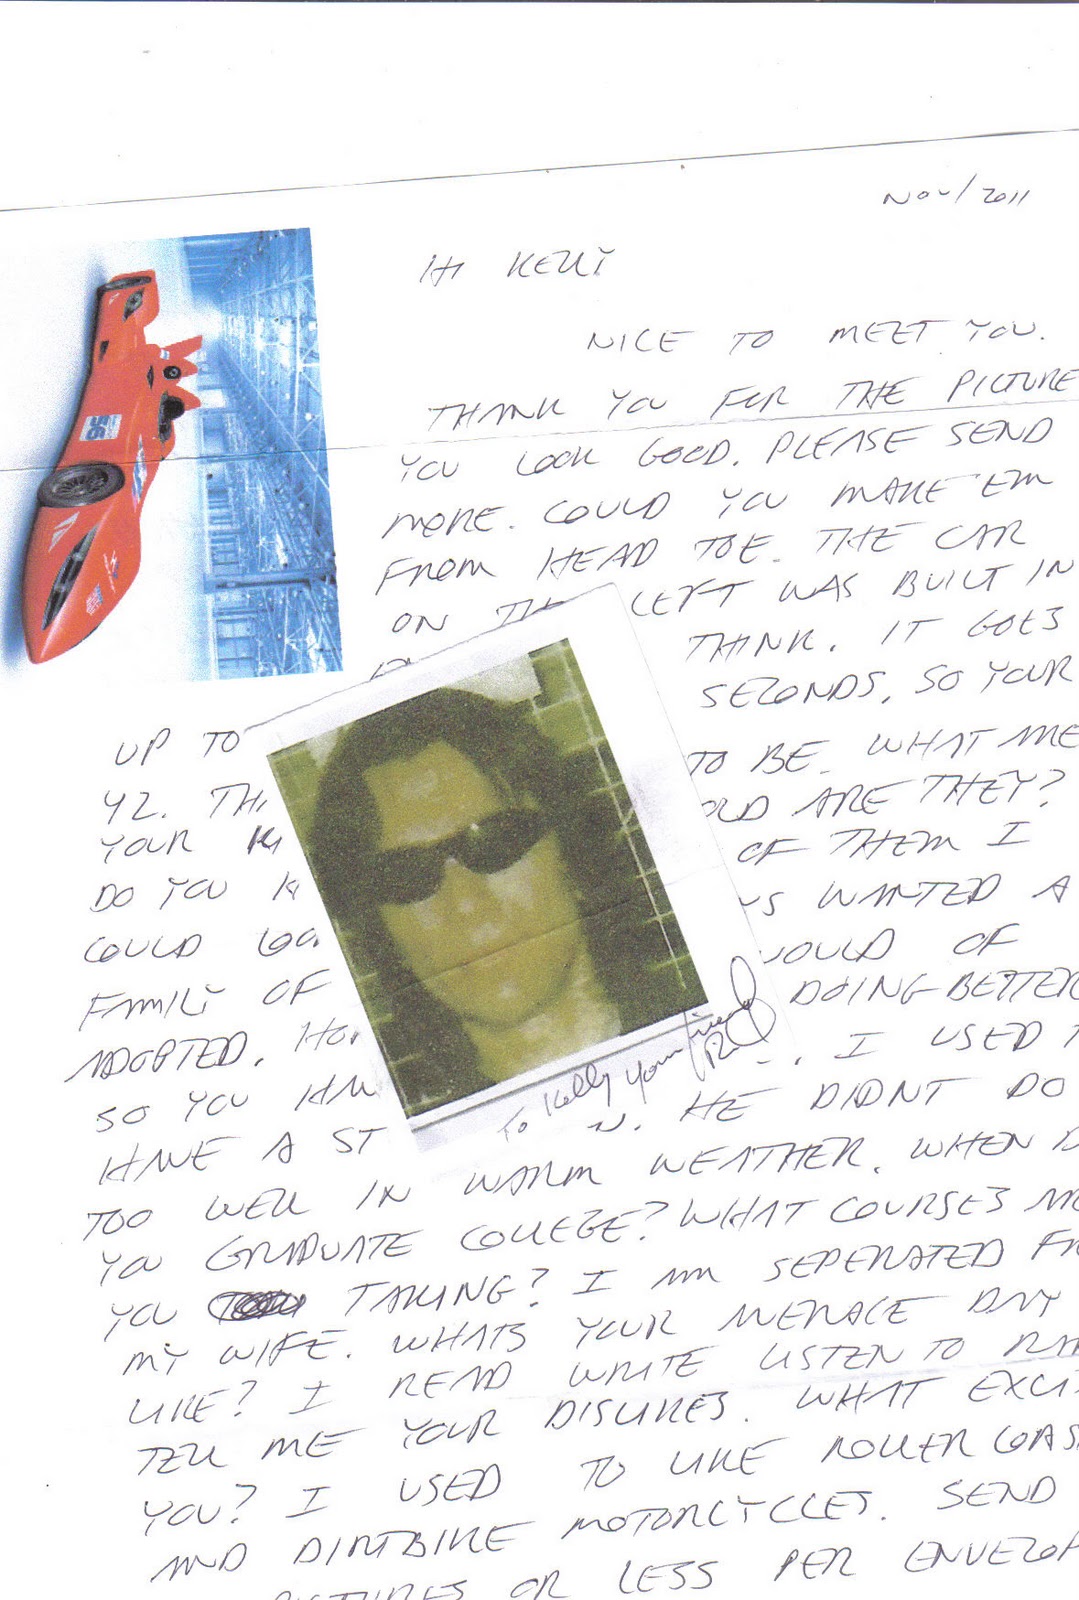 NOV/2011
HI KELLY
NICE TO MEET YOU.
THANK YOU FOR THE PICTURE
YOU LOOK GOOD. PLEASE SEND
MORE. COULD YOU MAKE 'EM
FROM HEAD TOE. THE CAR
ON THE LEFT WAS BUILT IN
THINK. IT GOES
SEZONDS, SO YOUR
UP TO TO BE. WHAT ME
42. THI OLD ARE THEY?
YOUR OF THEM I
DO YOU WANTED A
COULD WOULD OF
FAMILY OF DOING BETTER
ADOPTED. I USED T
SO YOU N. HE DIDNT DO
HAVE A ST
TOO WELL IN WARM WEATHER. WHEN D
YOU GRADUATE COLLEGE? WHAT COURSES
YOU TAKING? I AM SEPERATED FR
MY WIFE. WHATS YOUR AVERAGE DAY
LIKE? I READ WRITE LISTEN TO RA
TELL ME YOUR DISLIKES. WHAT EXCI
YOU? I USED TO LIKE ROLLER COAS
AND DIRTBIKE MOTORCYCLES. SEND
PICTURES OR LESS PER ENVELOP
To Kelly Your friend
56